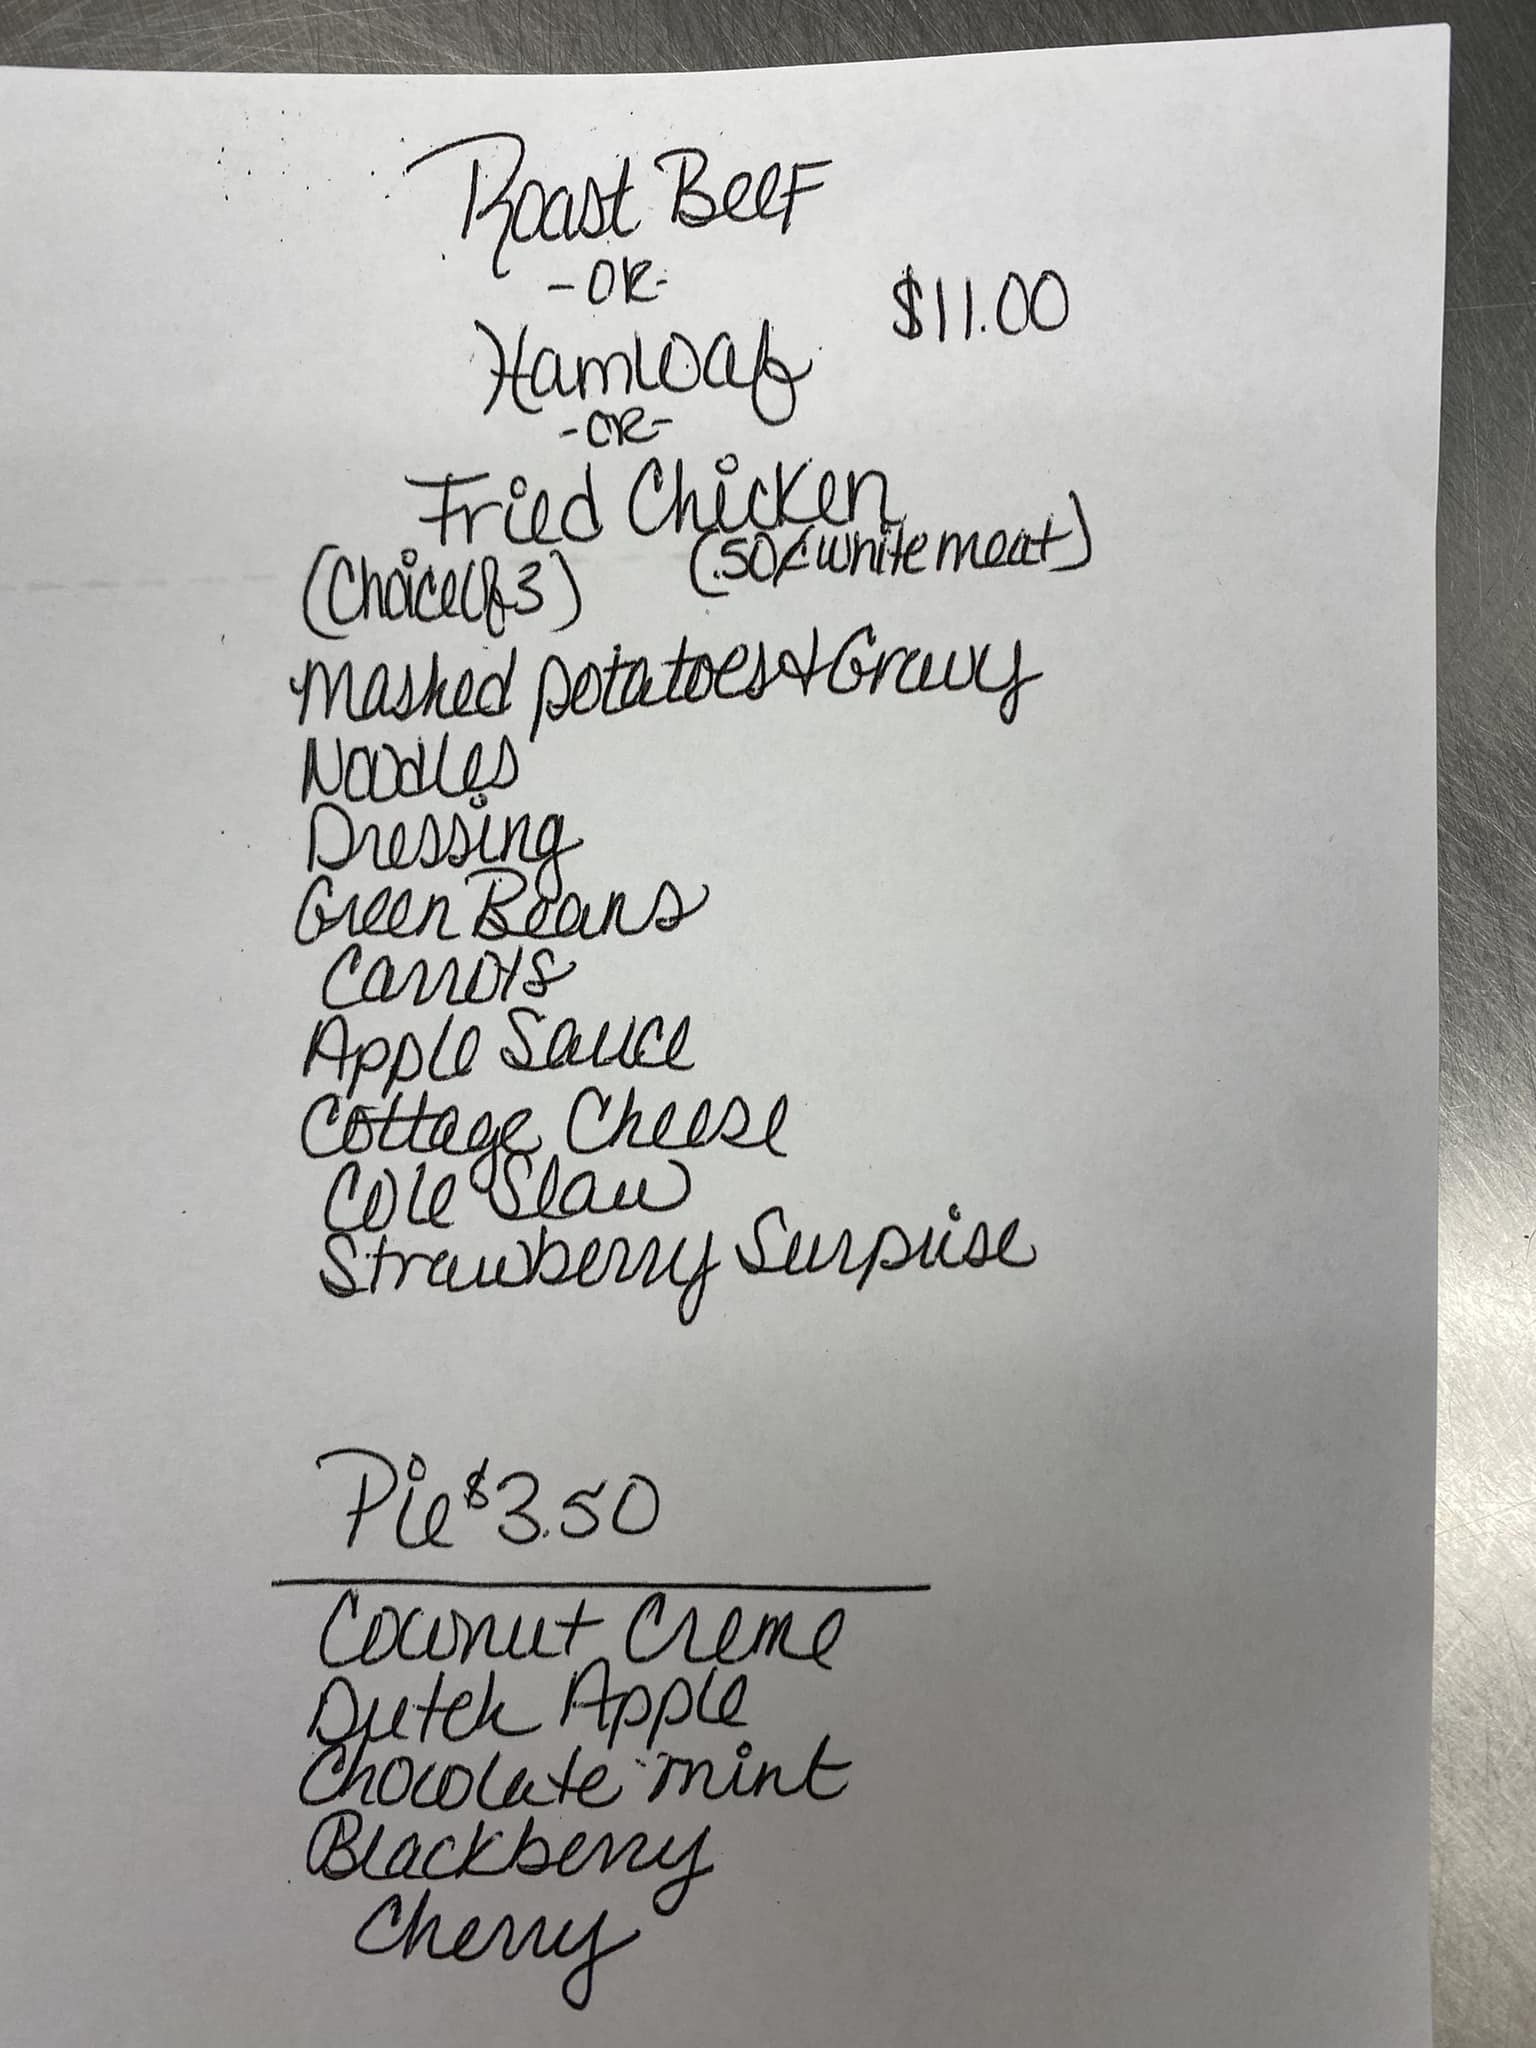 Roast Beef
-OR-
$11.00
Hamloaf
-OR-
Fried Chicken
(Choice of 3) (.50¢ white meat)
Mashed potatoes & Gravy
Noodles
Dressing
Green Beans
Carrots
Apple Sauce
Cottage Cheese
Cole Slaw
Strawberry Surprise
Pie $3.50
Coconut Creme
Dutch Apple
Chocolate mint
Blackberry
Cherry